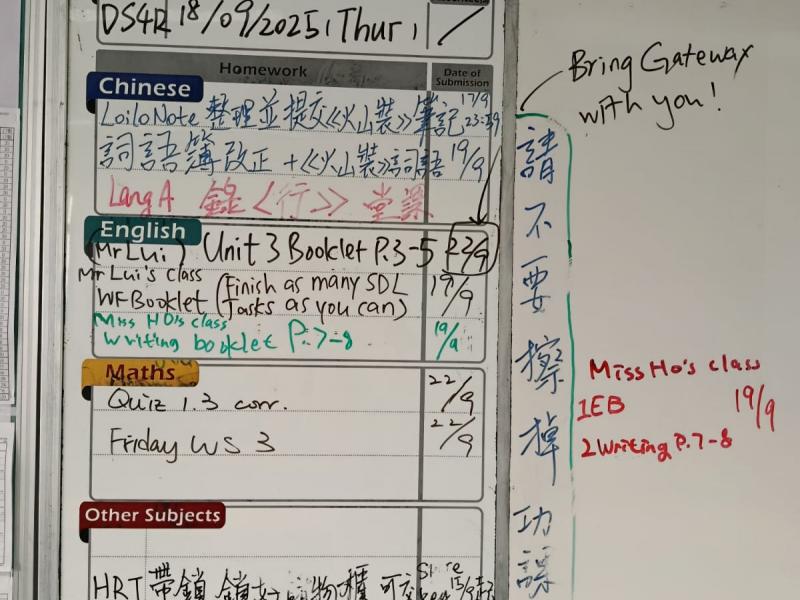 DS4R 18/09/2025 (Thur)
Homework
Date of Submission
Chinese
LoiloNote 整理並提交《火山裝》筆記 17/9 23:59
詞語簿改正 +《火山裝》詞語 19/9
Lang A 錄〈行》堂課
English
(Mr Lui) Unit 3 Booklet P.3-5 22/9
Mr Lui's class
WF Booklet (Finish as many SDL Tasks as you can) 19/9
Miss HO's class
Writing booklet P.7-8 19/9
Maths
Quiz 1.3 corr. 22/9
Friday WS 3 22/9
Other Subjects
HRT 帶鎖 鎖好 物櫃
Bring Gateway
with you!
請不要擦掉功課
Miss Ho's class
1EB 19/9
2 Writing P.7-8